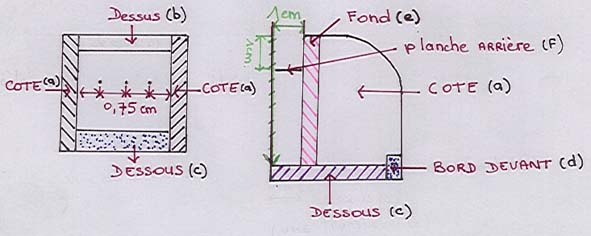 Dessus (b)
COTE (a)
COTE (a)
0,75 cm
DESSOUS (c)
1 cm
Fond (e)
planche ARRIÈRE (F)
COTE (a)
BORD DEVANT (d)
DESSOUS (c)